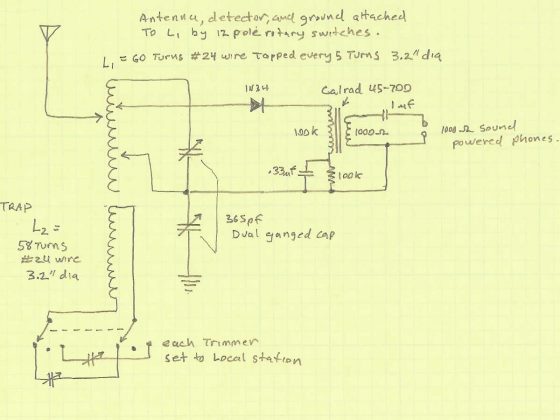 Antenna, detector, and ground attached
To L1 by 12 pole rotary switches.
L1 = 60 Turns #24 wire Tapped every 5 Turns 3.2" dia
1N34
Calrad 45-700
1 mF
100k
1000Ω
1000Ω Sound
powered phones.
.33mF
100k
TRAP
L2 =
58 Turns
#24 wire
3.2" dia
365pf
Dual ganged cap
each Trimmer
set to Local station